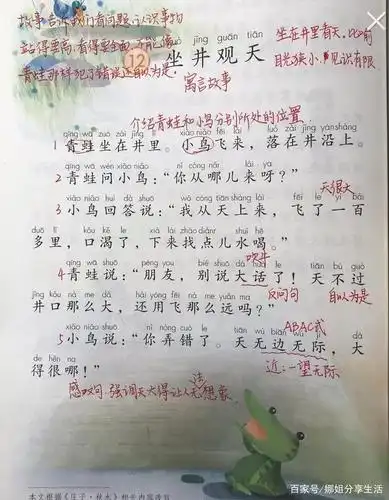 故事告诉我们看问题、认识事物
站得要高,看得要全面,不能像
青蛙那样犯了错误还自以为是.
jǐng guān tiān
12 坐井观天
坐在井里看天,比喻
目光狭小,见识有限
寓言故事
介绍青蛙和小鸟分别所处的位置.
qīng wā zuò zài jǐng lǐ xiǎo niǎo fēi lái luò zài jǐng yán shàng
1 青蛙坐在井里。小鸟飞来,落在井沿上。
qīng wā wèn xiǎo niǎo nǐ cóng nǎr lái ya
2 青蛙问小鸟:“你从哪儿来呀?”
天很大
xiǎo niǎo huí dá shuō wǒ cóng tiān shàng lái fēi le yì bǎi
3 小鸟回答说:“我从天上来,飞了一百
duō lǐ kǒu kě le xià lái zhǎo diǎnr shuǐ hē
多里,口渴了,下来找点儿水喝。”
吹牛
qīng wā shuō péng you bié shuō dà huà le tiān bú guò
4 青蛙说:“朋友,别说大话了!天不过
反问句 自以为是
jǐng kǒu nà me dà hái yòng fēi nà me yuǎn ma
井口那么大,还用飞那么远吗?”
ABAC式
xiǎo niǎo shuō nǐ nòng cuò le tiān wú biān wú jì dà
5 小鸟说:“你弄错了。天无边无际,大
de hěn na
得很哪!”
近:一望无际
感叹句.强调天大得让人无法想象.
本文根据《庄子·秋水》相关内容改写
百家号/娜姐分享生活